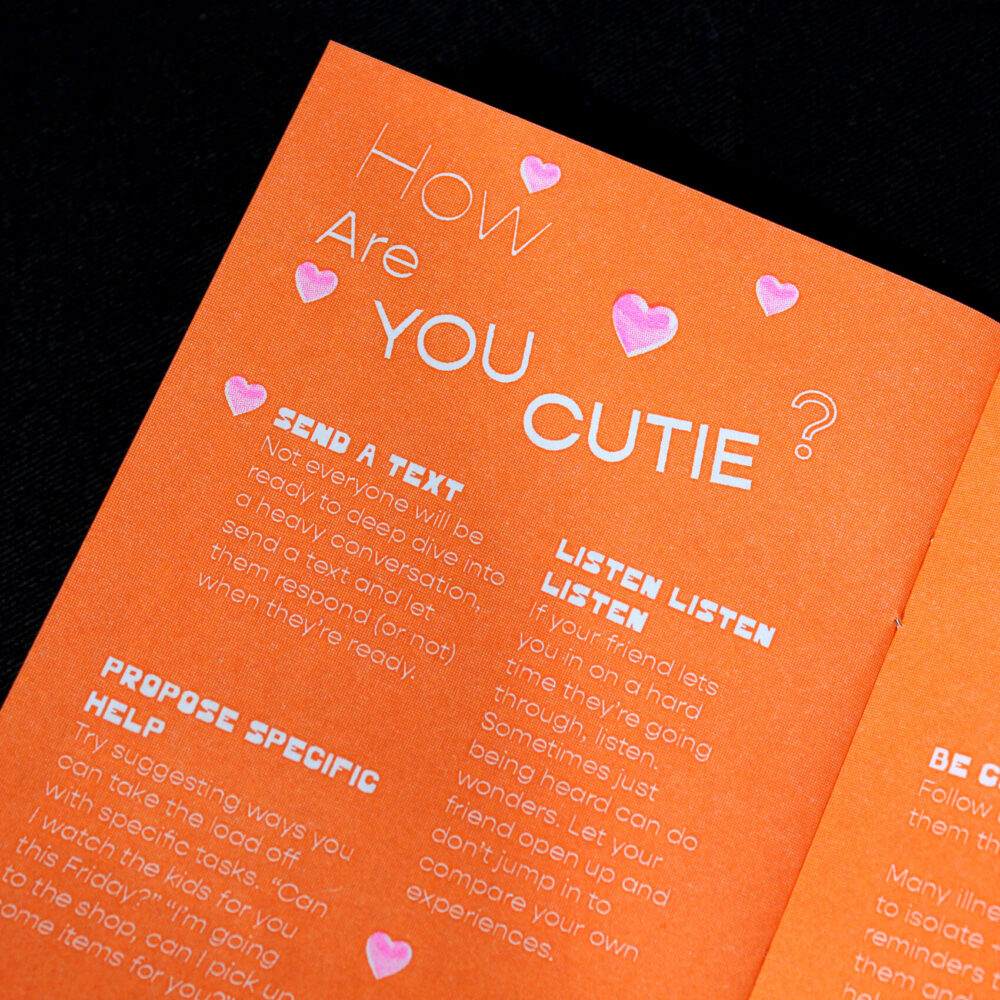 How
Are
YOU
CUTIE ?
SEND A TEXT
Not everyone will be
ready to deep dive into
a heavy conversation,
send a text and let
them respond (or not)
when they're ready.
PROPOSE SPECIFIC
HELP
Try suggesting ways you
can take the load off
with specific tasks. "Can
I watch the kids for you
this Friday?" "I'm going
to the shop, can I pick up
some items for you?"
LISTEN LISTEN
LISTEN
If your friend lets
you in on a hard
time they're going
through, listen.
Sometimes just
being heard can do
wonders. Let your
friend open up and
don't jump in to
compare your own
experiences.
BE
Follow
them
Many
to isolate
reminders
them and